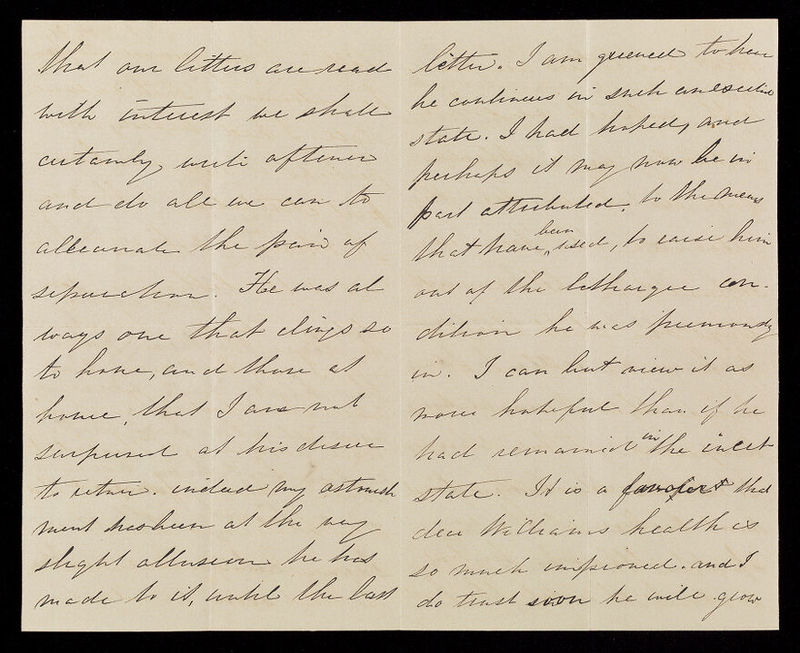 that our letters are read
with interest we shall
certainly write oftener
and do all we can to
alleviate the pain of
separation. He was al
ways one that clings so
to home, and those at
home, that I am not
surprised at his desire
to return. indeed my astonish
ment has been at the very
slight allusion he has
made to it, until the last
letter. I am grieved to hear
he continues in such an excited
state. I had hoped, and
perhaps it may now be in
part attributed, to the means
that have been used, to raise him
out of the lethargic con-
dition he was previously
in. I can but view it as
more hopeful than if he
had remained in the inert
state. It is a comfort that
dear Williams health is
so much improved. and I
do trust soon he will grow